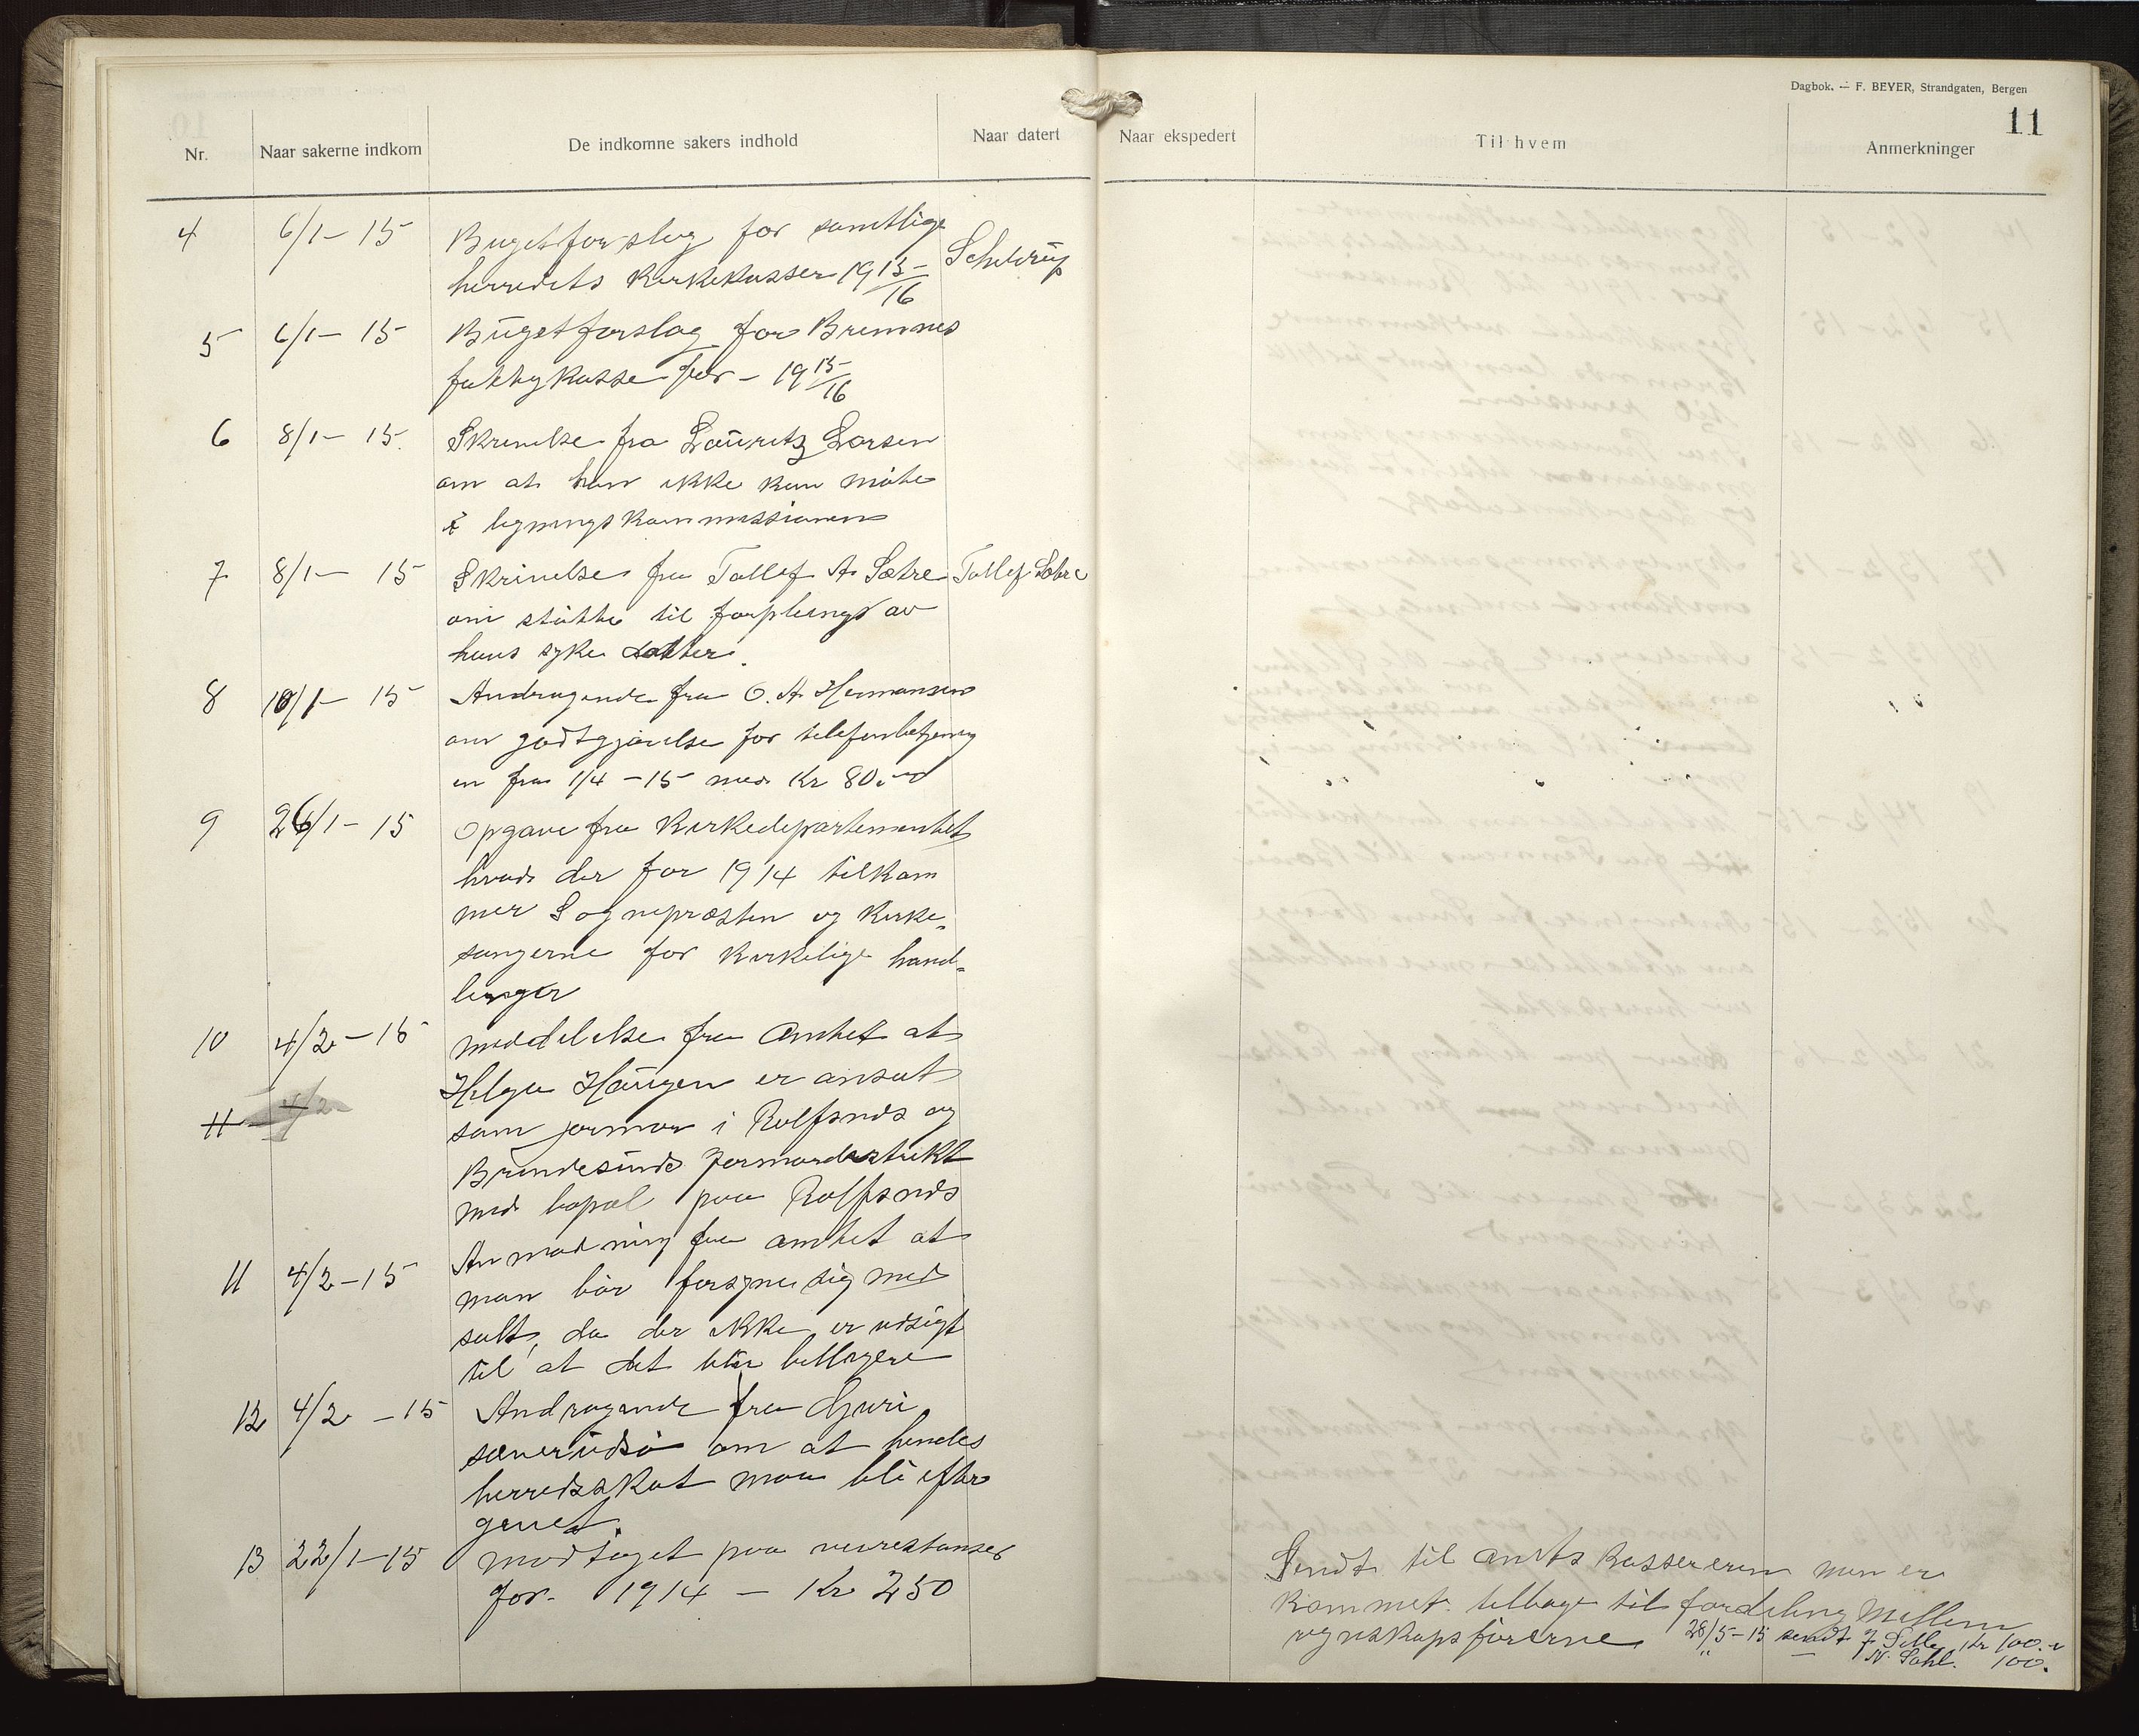 Dagbok. — F. BEYER, Strandgaten, Bergen
11
Nr. Naar sakerne indkom De indkomne sakers indhold Naar datert Naar ekspedert Til hvem Anmerkninger
4 6/1 - 15 Bugetforslag for samtlige
herredets Kirkekasser 1915/16 Scheldrup
5 6/1 - 15 Bugetforslag for Bremnes
fattigkasse for - 1915/16
6 8/1 - 15. Skrivelse fra Lauritz Larsen
om at han ikke kan møte
i ligningskommissionen
7 8/1 - 15 Skrivelse fra Tollef A. Sætre Tollef Sætre
om støtte til forpleining av
hans syke datter.
8 10/1 - 15 Andragende fra O. A. Hermansen
om godtgjørelse for telefonbetjening
en fra 1/4 - 15 med Kr 80.-
9 26/1 - 15 Opgave fra Kirkedepartementet
hvad der for 1914 tilkom
mer Sognepræsten og Kirke-
sangerne for Kirkelige hand-
linger
10 4/2 - 15 meddelelse fra Amtet at
Helga Haugen er ansat
11 4/2 som jormor i Rolfsnes og
Brandesunds Jormordistrikt
med bopæl paa Rolfsnes
11 4/2 - 15 Anmodning fra amtet at
man bør forsyne sig med
salt, da der ikke er udsigt
til at det blir billigere
12 4/2 - 15 Andragende fra Guri
om at hendes
herredsskat maa bli efter
givet.
13 22/1 - 15 modtaget paa veirestanser
for. 1914 - Kr 250
Sendt til amtskassereren men er
kommet tilbage til fordeling mellem
regnskapsførerne 28/5 - 15 sendt Kr 100.-
N. Sahl. 100.